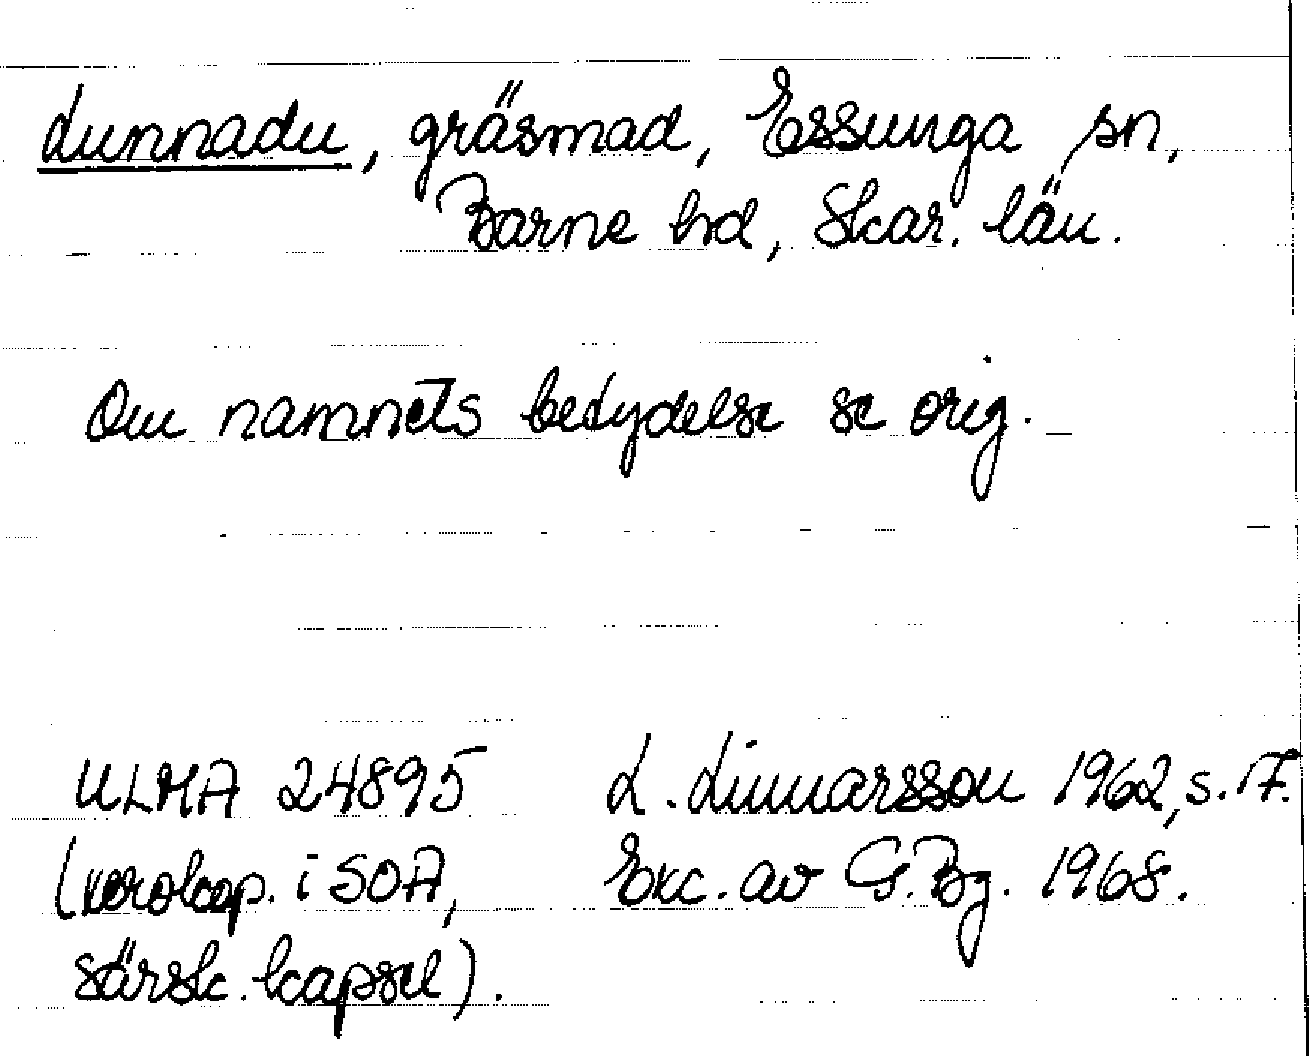 Lunnadu, gräsmad, Essunga sn,
Barne hd, Skar. län.
Om namnets betydelse se orig.
ULMA 24895 L. Linnarsson 1962, s. 17.
(xerokop. i SOA, Exc. av G. Bg. 1968.
särsk. kapsel).